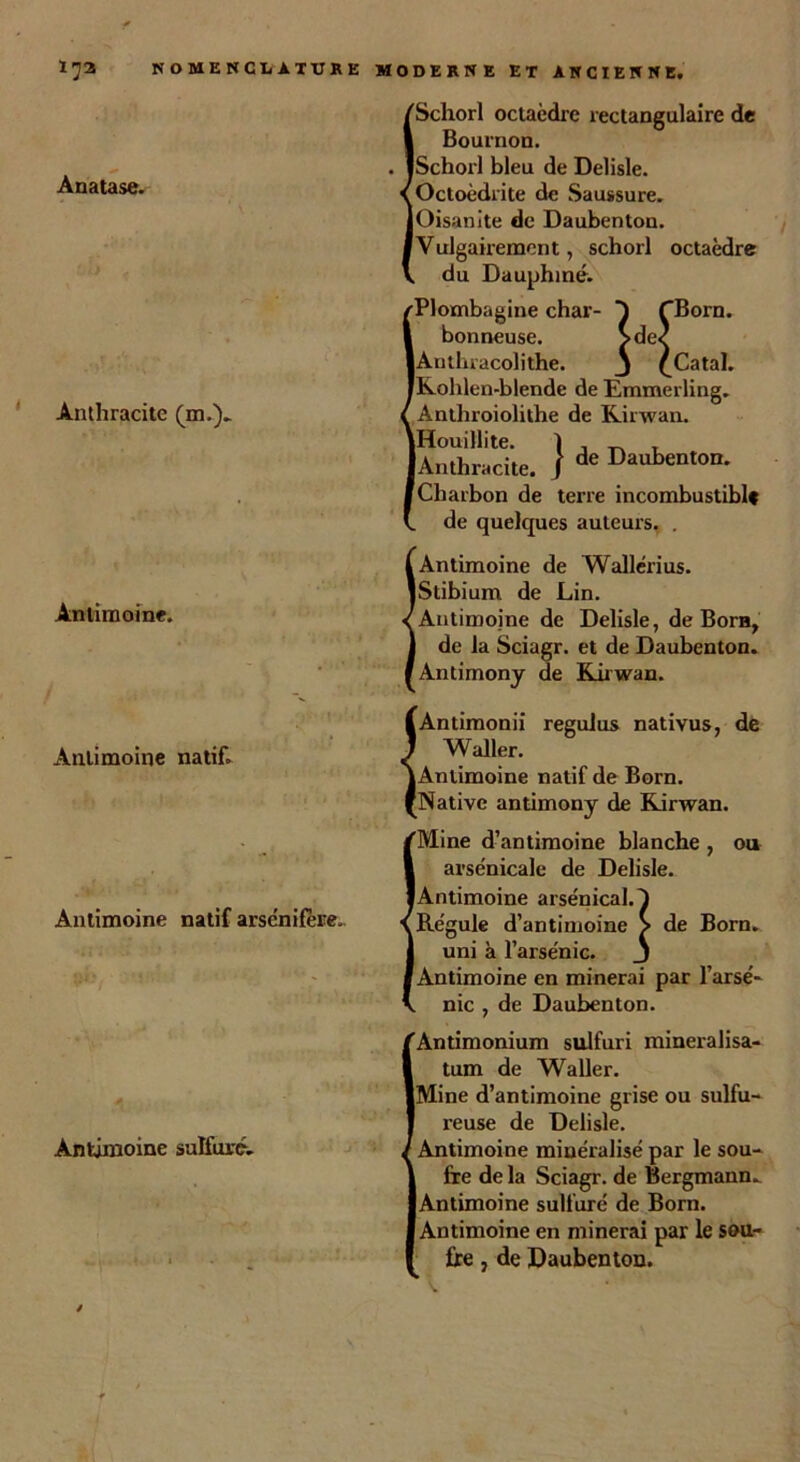 172 NOMENCLATURE MODERNE ET ANCIENNE.
Anatase.
Schorl octaèdre rectangulaire de
Bournon.
Schorl bleu de Delisle.
Octoèdrite de Saussure.
Oisanite de Daubenton.
Vulgairement, schorl octaèdre
du Dauphiné.
Anthracite (m.).
Plombagine char-
bonneuse.
Anthracolithe.
de
Born.
Catal.
Kohlen-blende de Emmerling.
Anthroiolithe de Kirwan.
Houillite.
Anthracite.
de Daubenton.
Charbon de terre incombustible
de quelques auteurs.
Antimoine.
Antimoine de Wallérius.
Stibium de Lin.
Antimoine de Delisle, de Born,
de la Sciagr. et de Daubenton.
Antimony de Kirwan.
Antimoine natif.
Antimonii regulus nativus, de
Waller.
Antimoine natif de Born.
Native antimony de Kirwan.
Antimoine natif arsénifère.
Mine d'antimoine blanche, ou
arsénicale de Delisle.
Antimoine arsénical.
Régule d'antimoine
uni à l'arsénic.
de Born.
Antimoine en minerai par l'arsé-
nic, de Daubenton.
Antimoine sulfuré.
Antimonium sulfuri mineralisa-
tum de Waller.
Mine d'antimoine grise ou sulfu-
reuse de Delisle.
Antimoine minéralisé par le sou-
fre de la Sciagr. de Bergmann.
Antimoine sulfuré de Born.
Antimoine en minerai par le sou-
fre, de Daubenton.